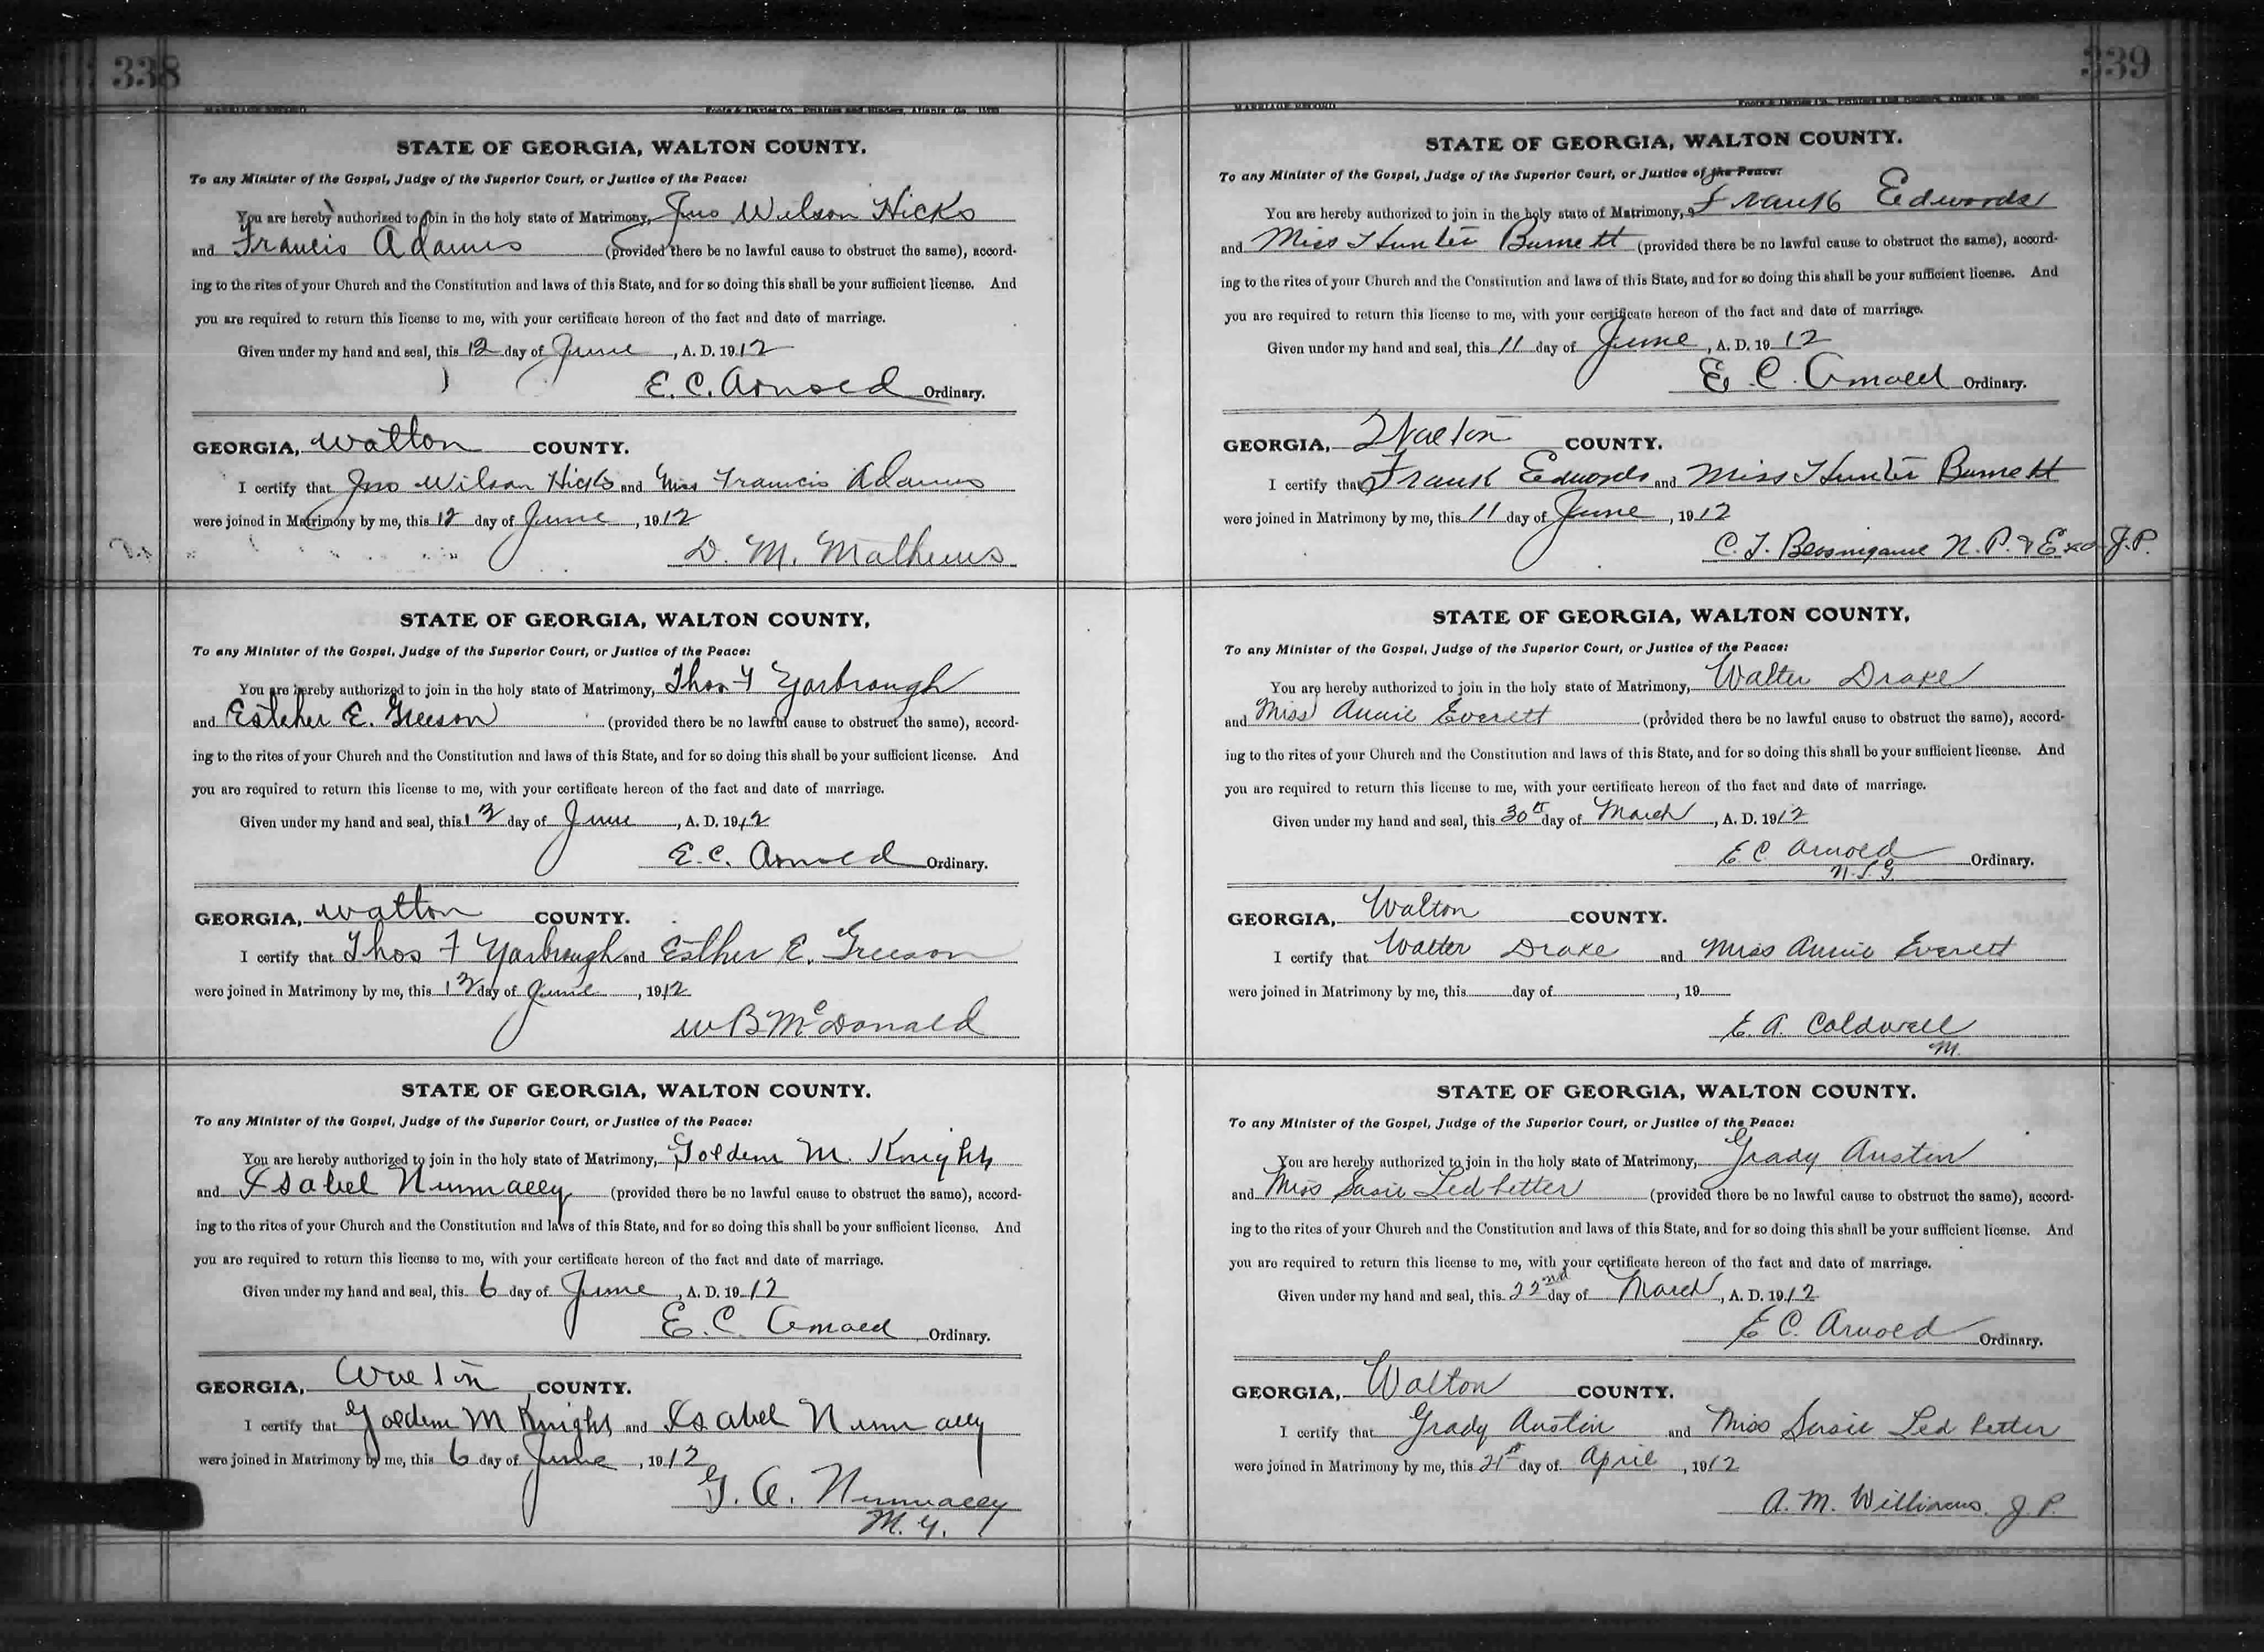 338
MARRIAGE RECORD Foote & Davies Co., Printers and Binders, Atlanta, Ga.
STATE OF GEORGIA, WALTON COUNTY.
To any Minister of the Gospel, Judge of the Superior Court, or Justice of the Peace:
You are hereby authorized to join in the holy state of Matrimony, Jno Wilson Hicks
and Francis Adams (provided there be no lawful cause to obstruct the same), accord-
ing to the rites of your Church and the Constitution and laws of this State, and for so doing this shall be your sufficient license. And
you are required to return this license to me, with your certificate hereon of the fact and date of marriage.
Given under my hand and seal, this 12 day of June, A. D. 1912
E. C. Arnold Ordinary.
GEORGIA, Walton COUNTY.
I certify that Jno Wilson Hicks and Miss Francis Adams
were joined in Matrimony by me, this 12 day of June, 1912
D. M. Mathews
STATE OF GEORGIA, WALTON COUNTY.
To any Minister of the Gospel, Judge of the Superior Court, or Justice of the Peace:
You are hereby authorized to join in the holy state of Matrimony, Thos F Yarbrough
and Estcher E. Greeson (provided there be no lawful cause to obstruct the same), accord-
ing to the rites of your Church and the Constitution and laws of this State, and for so doing this shall be your sufficient license. And
you are required to return this license to me, with your certificate hereon of the fact and date of marriage.
Given under my hand and seal, this 12 day of June, A. D. 1912
E. C. Arnold Ordinary.
GEORGIA, Walton COUNTY.
I certify that Thos F Yarbrough and Esther E. Greeson
were joined in Matrimony by me, this 12 day of June, 1912
W B McDonald
STATE OF GEORGIA, WALTON COUNTY.
To any Minister of the Gospel, Judge of the Superior Court, or Justice of the Peace:
You are hereby authorized to join in the holy state of Matrimony, Golden M. Knight
and Isabel Nunnally (provided there be no lawful cause to obstruct the same), accord-
ing to the rites of your Church and the Constitution and laws of this State, and for so doing this shall be your sufficient license. And
you are required to return this license to me, with your certificate hereon of the fact and date of marriage.
Given under my hand and seal, this 6 day of June, A. D. 1912
E. C. Arnold Ordinary.
GEORGIA, Walton COUNTY.
I certify that Golden M Knight and Isabel Nunnally
were joined in Matrimony by me, this 6 day of June, 1912
G. A. Nunnally
M. G.
339
MARRIAGE RECORD
STATE OF GEORGIA, WALTON COUNTY.
To any Minister of the Gospel, Judge of the Superior Court, or Justice of the Peace:
You are hereby authorized to join in the holy state of Matrimony, Frank Edwards
and Miss Hunter Burnett (provided there be no lawful cause to obstruct the same), accord-
ing to the rites of your Church and the Constitution and laws of this State, and for so doing this shall be your sufficient license. And
you are required to return this license to me, with your certificate hereon of the fact and date of marriage.
Given under my hand and seal, this 11 day of June, A. D. 1912
E. C. Arnold Ordinary.
GEORGIA, Walton COUNTY.
I certify that Frank Edwards and Miss Hunter Burnett
were joined in Matrimony by me, this 11 day of June, 1912
C. T. N. P. & Exo J. P.
STATE OF GEORGIA, WALTON COUNTY.
To any Minister of the Gospel, Judge of the Superior Court, or Justice of the Peace:
You are hereby authorized to join in the holy state of Matrimony, Walter Drake
and Miss Annie Everett (provided there be no lawful cause to obstruct the same), accord-
ing to the rites of your Church and the Constitution and laws of this State, and for so doing this shall be your sufficient license. And
you are required to return this license to me, with your certificate hereon of the fact and date of marriage.
Given under my hand and seal, this 30th day of March, A. D. 1912
E C Arnold Ordinary.
GEORGIA, Walton COUNTY.
I certify that Walter Drake and Miss Annie Everett
were joined in Matrimony by me, this day of , 19
E. A. Coldwell
M.
STATE OF GEORGIA, WALTON COUNTY.
To any Minister of the Gospel, Judge of the Superior Court, or Justice of the Peace:
You are hereby authorized to join in the holy state of Matrimony, Grady Austin
and Miss Susie Ledbetter (provided there be no lawful cause to obstruct the same), accord-
ing to the rites of your Church and the Constitution and laws of this State, and for so doing this shall be your sufficient license. And
you are required to return this license to me, with your certificate hereon of the fact and date of marriage.
Given under my hand and seal, this 22nd day of March, A. D. 1912
E C. Arnold Ordinary.
GEORGIA, Walton COUNTY.
I certify that Grady Austin and Miss Susie Led better
were joined in Matrimony by me, this 21st day of April, 1912
A. M. Williams, J. P.